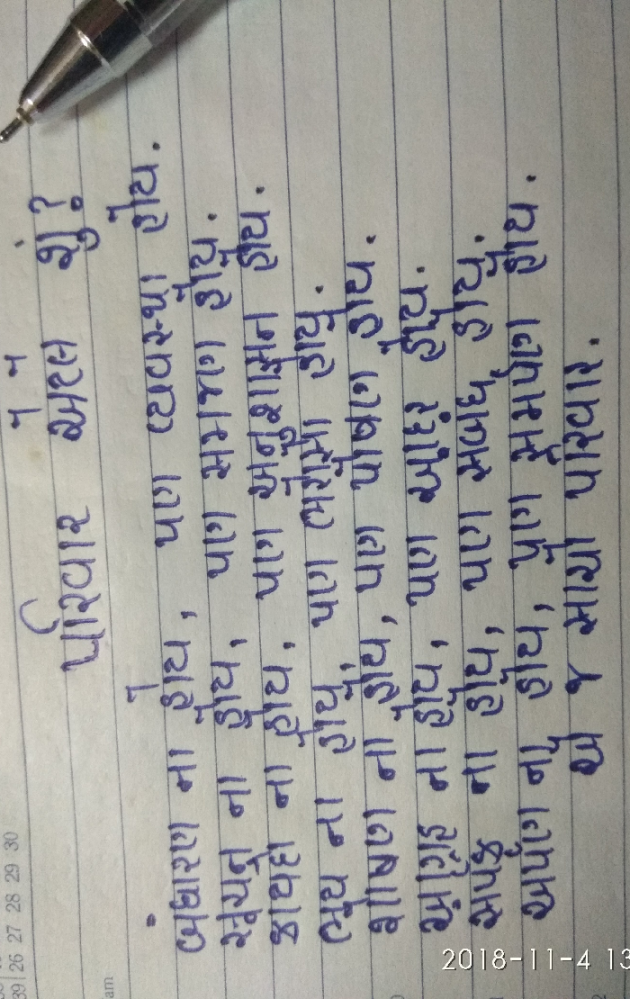 પરિવાર એટલે શું?
બંધારણ ના હોય, પણ વ્યવસ્થા હોય.
સૂચન ના હોય, પણ સમજણ હોય.
કાયદા ના હોય, પણ અનુશાસન હોય.
ભય ના હોય, પણ ભરોસો હોય.
શોષણ ના હોય, પણ પોષણ હોય.
આગ્રહ ના હોય, પણ આદર હોય.
સંપર્ક ના હોય, પણ સંબંધ હોય.
અર્પણ ના હોય, પણ સમર્પણ હોય.
એ જ સાચો પરિવાર.
39 26 27 28 29 30
am
2018-11-4 13